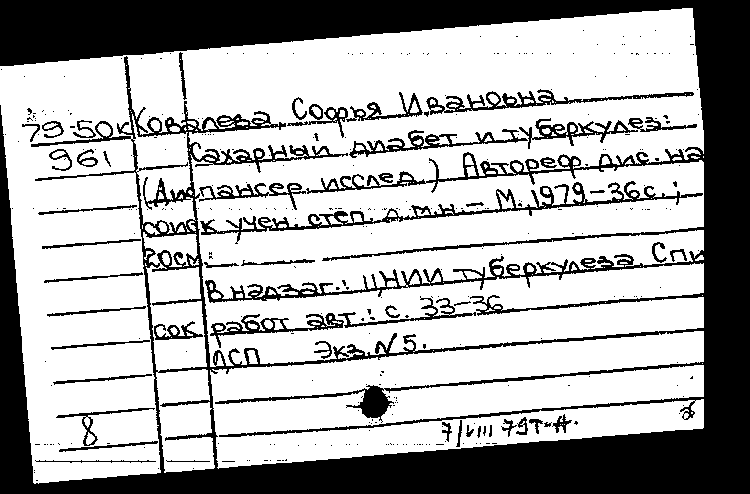 79-50к Ковалева, Софья Ивановна.
961 Сахарный диабет и туберкулез:
(Диспансер. исслед.) Автореф. дис. на
соиск учен. степ. д.м.н. - М., 1979 - 36с.;
20см.
В надзаг.: ЦНИИ туберкулеза. Спи
сок работ авт.: с. 33-36
ДСП Экз. N 5.
8
7/VIII 79 Т-А.